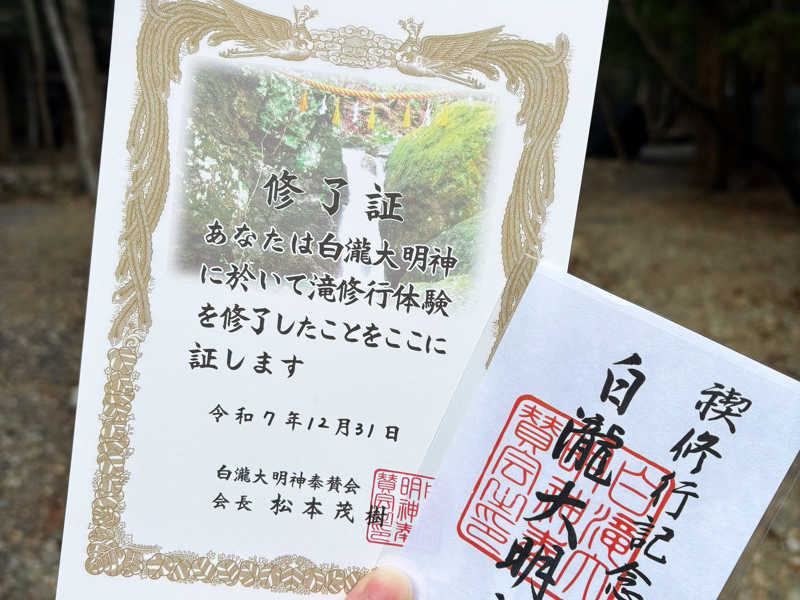 修了証
あなたは白瀧大明神
に於いて滝修行体験
を修了したことをここに
証します
令和7年12月31日
白瀧大明神奉賛会
会長 松本茂樹
禊修行記念
白瀧大明